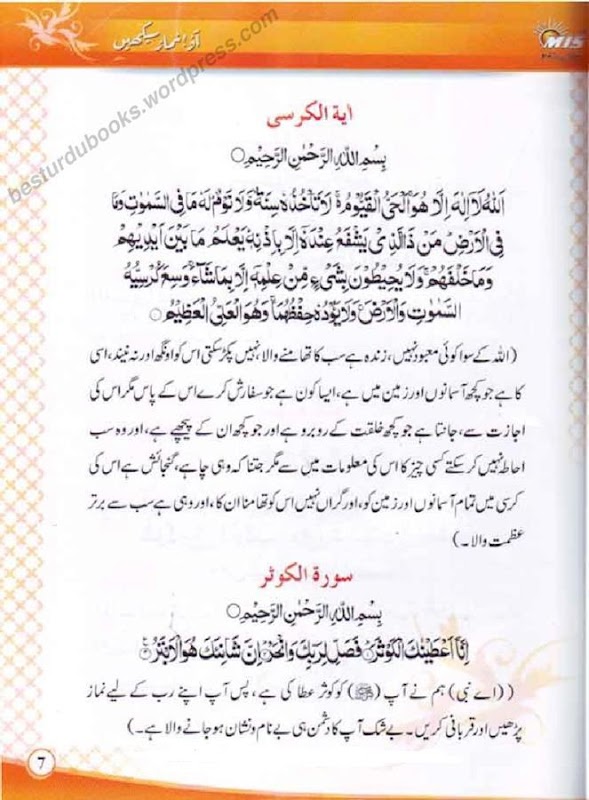 آؤ! نماز سیکھیں
MIS
besturdubooks.wordpress.com
آیة الکرسی
بِسْمِ اللّٰهِ الرَّحْمٰنِ الرَّحِیْمِ○
اَللّٰهُ لَاۤ اِلٰهَ اِلَّا هُوَ اَلْحَیُّ الْقَیُّوْمُ ۚ لَا تَاْخُذُهٗ سِنَةٌ وَّلَا نَوْمٌ لَهٗ مَا فِی السَّمٰوٰتِ وَمَا
فِی الْاَرْضِ مَنْ ذَا الَّذِیْ یَشْفَعُ عِنْدَهٗۤ اِلَّا بِاِذْنِهٖ یَعْلَمُ مَا بَیْنَ اَیْدِیْهِمْ
وَمَا خَلْفَهُمْ ۚ وَلَا یُحِیْطُوْنَ بِشَیْءٍ مِّنْ عِلْمِهٖۤ اِلَّا بِمَا شَآءَ ۚ وَسِعَ كُرْسِیُّهُ
السَّمٰوٰتِ وَالْاَرْضَ ۚ وَلَا یَـُٔوْدُهٗ حِفْظُهُمَا ۚ وَهُوَ الْعَلِیُّ الْعَظِیْمُ○
(اللہ کے سوا کوئی معبود نہیں، زندہ ہے سب کا تھامنے والا نہیں پکڑ سکتی اس کو اونگھ اور نہ نیند، اسی
کا ہے جو کچھ آسمانوں اور زمین میں ہے، ایسا کون ہے جو سفارش کرے اس کے پاس مگر اس کی
اجازت سے، جانتا ہے جو کچھ خلقت کے روبرو ہے اور جو کچھ ان کے پیچھے ہے، اور وہ سب
احاطہ نہیں کر سکتے کسی چیز کا اس کی معلومات میں سے مگر جتنا کہ وہی چاہے، گنجائش ہے اس کی
کرسی میں تمام آسمانوں اور زمین کو، اور گراں نہیں اس کو تھامنا ان کا، اور وہی ہے سب سے برتر
عظمت والا۔)
سورة الکوثر
بِسْمِ اللّٰهِ الرَّحْمٰنِ الرَّحِیْمِ○
اِنَّاۤ اَعْطَیْنٰكَ الْكَوْثَرَ فَصَلِّ لِرَبِّكَ وَانْحَرْ اِنَّ شَانِئَكَ هُوَ الْاَبْتَرُ
((اے نبی) ہم نے آپ (ﷺ) کو کوثر عطا کی ہے، پس آپ اپنے رب کے لیے نماز
پڑھیں اور قربانی کریں۔ بے شک آپ کا دشمن ہی بے نام و نشان ہو جانے والا ہے۔)
7